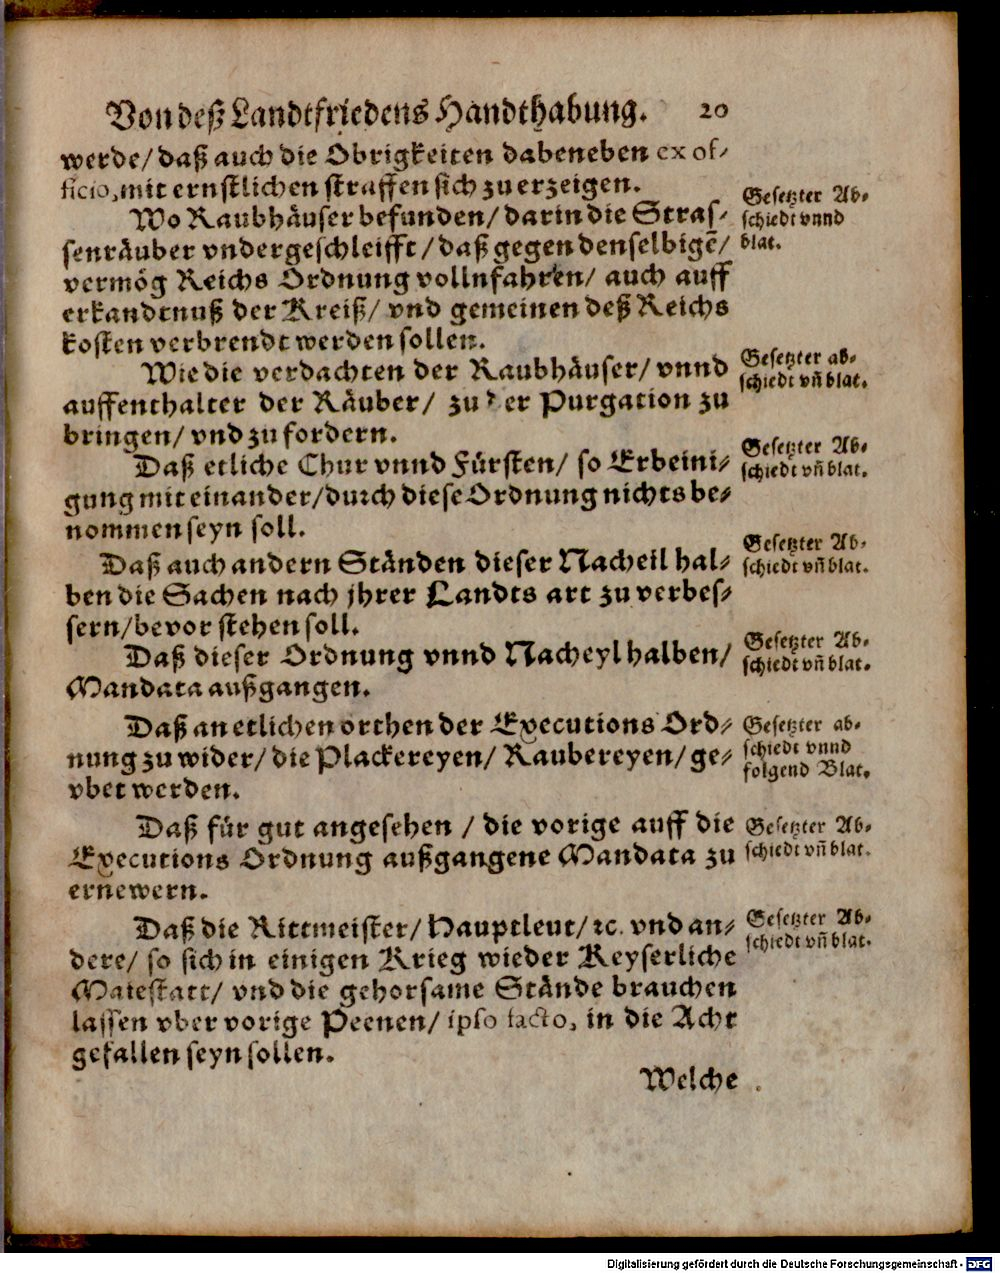 Von deß Landtfriedens Handthabung. 20
werde/ daß auch die Obrigkeiten dabeneben ex of-
ficio, mit ernstlichen straffen sich zu erzeigen.
Wo Raubhäuser befunden/ darin die Stras-
senräuber vndergeschleifft/ daß gegen denselbigē/
vermög Reichs Ordnung vollnfahren/ auch auff
erkandtnuß der Kreiß/ vnd gemeinen deß Reichs
kosten verbrendt werden sollen.
Gesetzter Ab-
schiedt vnnd
blat.
Wie die verdachten der Raubhäuser/ vnnd
auffenthalter der Räuber/ zu der Purgation zu
bringen/ vnd zu fordern.
Gesetzter ab-
schiedt vñ blat.
Daß etliche Chur vnnd Fürsten/ so Erbeini-
gung mit einander/ durch diese Ordnung nichts be-
nommen seyn soll.
Gesetzter Ab-
schiedt vñ blat.
Daß auch andern Ständen dieser Nacheil hal-
ben die Sachen nach jhrer Landts art zu verbes-
sern/ bevor stehen soll.
Gesetzter Ab-
schiedt vñ blat.
Daß dieser Ordnung vnnd Nacheyl halben/
Mandata außgangen.
Gesetzter Ab-
schiedt vñ blat.
Daß an etlichen orthen der Executions Ord-
nung zu wider/ die Plackereyen/ Raubereyen/ ge-
vbet werden.
Gesetzter ab-
schiedt vnnd
folgend Blat.
Daß für gut angesehen / die vorige auff die
Executions Ordnung außgangene Mandata zu
ernewern.
Gesetzter Ab-
schiedt vñ blat.
Daß die Rittmeister/ Hauptleut/ ꝛc. vnd an-
dere/ so sich in einigen Krieg wieder Keyserliche
Maiestatt/ vnd die gehorsame Stände brauchen
lassen vber vorige Peenen/ ipso facto, in die Acht
gefallen seyn sollen.
Gesetzter Ab-
schiedt vñ blat.
Welche
Digitalisierung gefördert durch die Deutsche Forschungsgemeinschaft - DFG